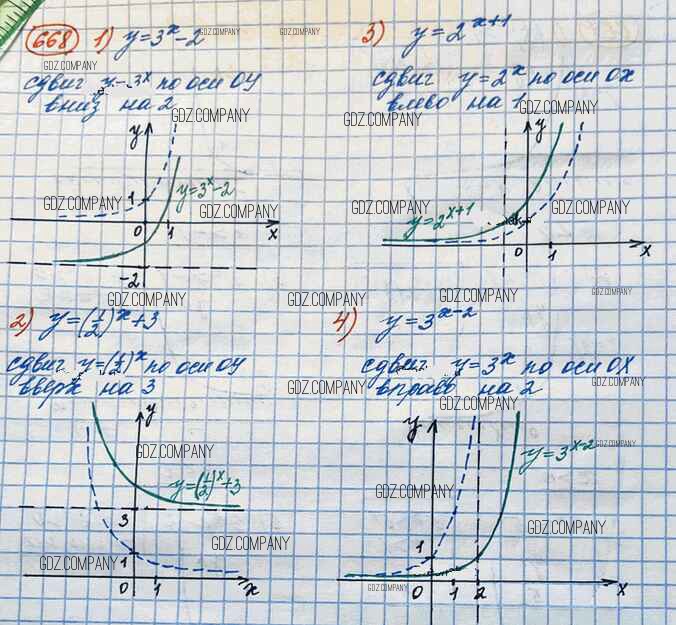 668 1) y = 3^x - 2
GDZ.COMPANY
GDZ.COMPANY
GDZ.COMPANY
сдвиг y = 3^x по оси ОУ
вниз на 2
GDZ.COMPANY
y
1
y = 3^x - 2
GDZ.COMPANY
GDZ.COMPANY
0 1 x
-2
GDZ.COMPANY
2) y = (1/2)^x + 3
сдвиг y = (1/2)^x по оси ОУ
вверх на 3
y
GDZ.COMPANY
y = (1/2)^x + 3
3
GDZ.COMPANY
1
0 1 x
3) y = 2^{x+1}
GDZ.COMPANY
сдвиг y = 2^x по оси ОХ
влево на 1
GDZ.COMPANY
GDZ.COMPANY
y
GDZ.COMPANY
GDZ.COMPANY
y = 2^{x+1}
0 1 x
GDZ.COMPANY
GDZ.COMPANY
GDZ.COMPANY
4) y = 3^{x-2}
сдвиг y = 3^x по оси ОХ
вправо на 2
GDZ.COMPANY
GDZ.COMPANY
GDZ.COMPANY
y
GDZ.COMPANY
y = 3^{x-2}
GDZ.COMPANY
GDZ.COMPANY
1
GDZ.COMPANY
0 1 2 x